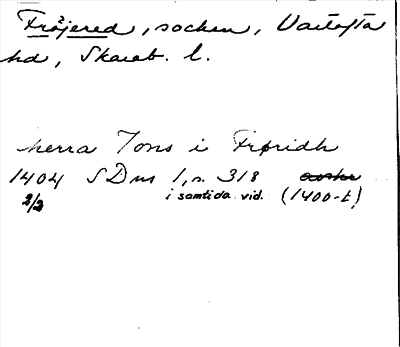 Fröjered, socken, Vartofta
hd, Skarab. l.
herra Jons i Frøridh
1404 SDns 1, n. 318 avskr
2/2 i samtida vid. (1400-t)